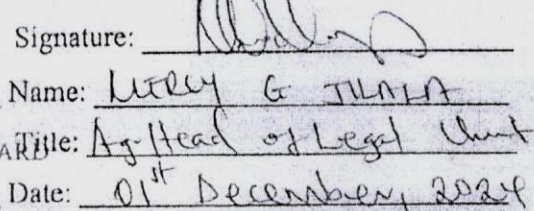 Signature:
Name: MERCY G JILALA
ARD Title: Ag. Head of Legal Unit
Date: 01st December, 2024